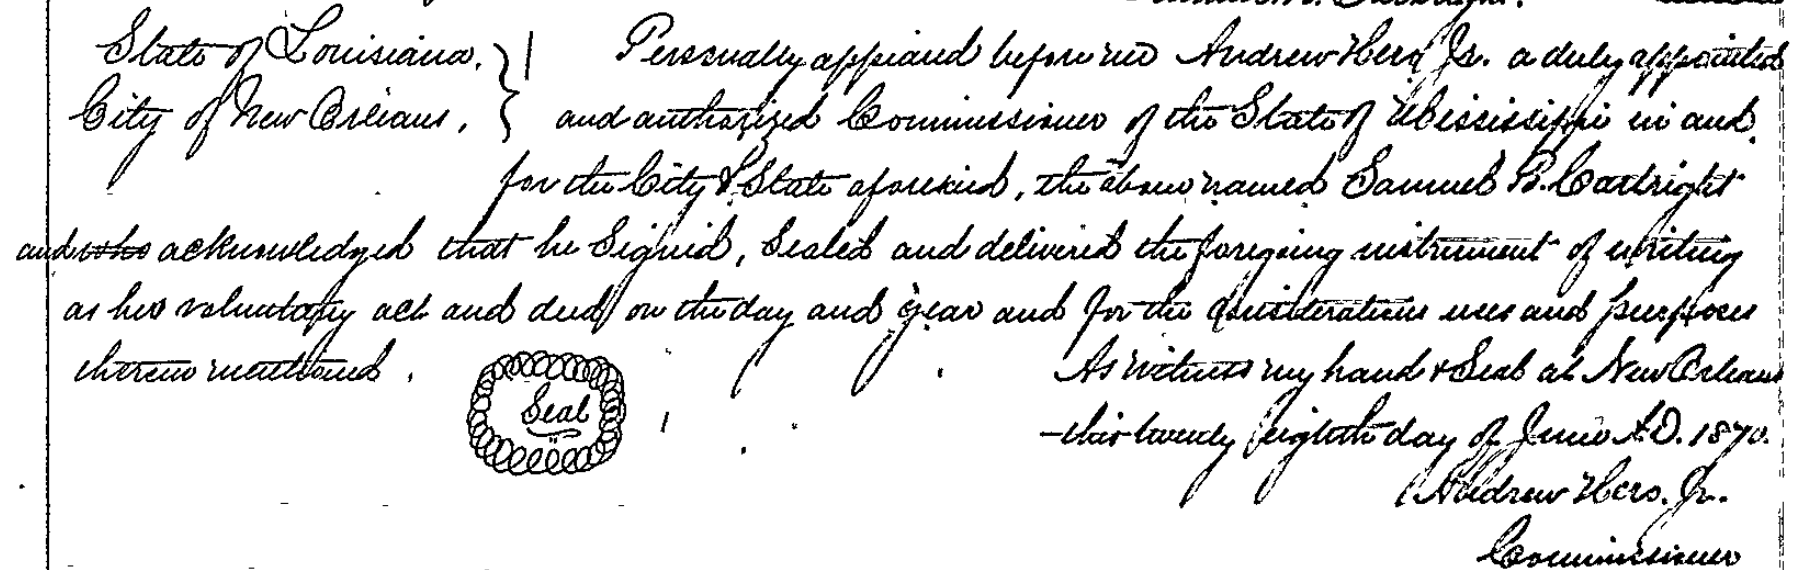 State of Louisiana. } Personally appeared before me Andrew Hero, Jr. a duly appointed
City of New Orleans. } and authorized Commissioner of the State of Mississippi in and
for the City & State aforesaid, the above named Samuel B. Cartright
and who acknowledged that he Signed, Sealed and delivered the foregoing instrument of writing
as his voluntary act and deed on the day and year and for the considerations uses and purposes
therein mentioned.
Seal
As witness my hand & Seal at New Orleans
this twenty eighth day of June A.D. 1870.
Andrew Hero. Jr.
Commissioner